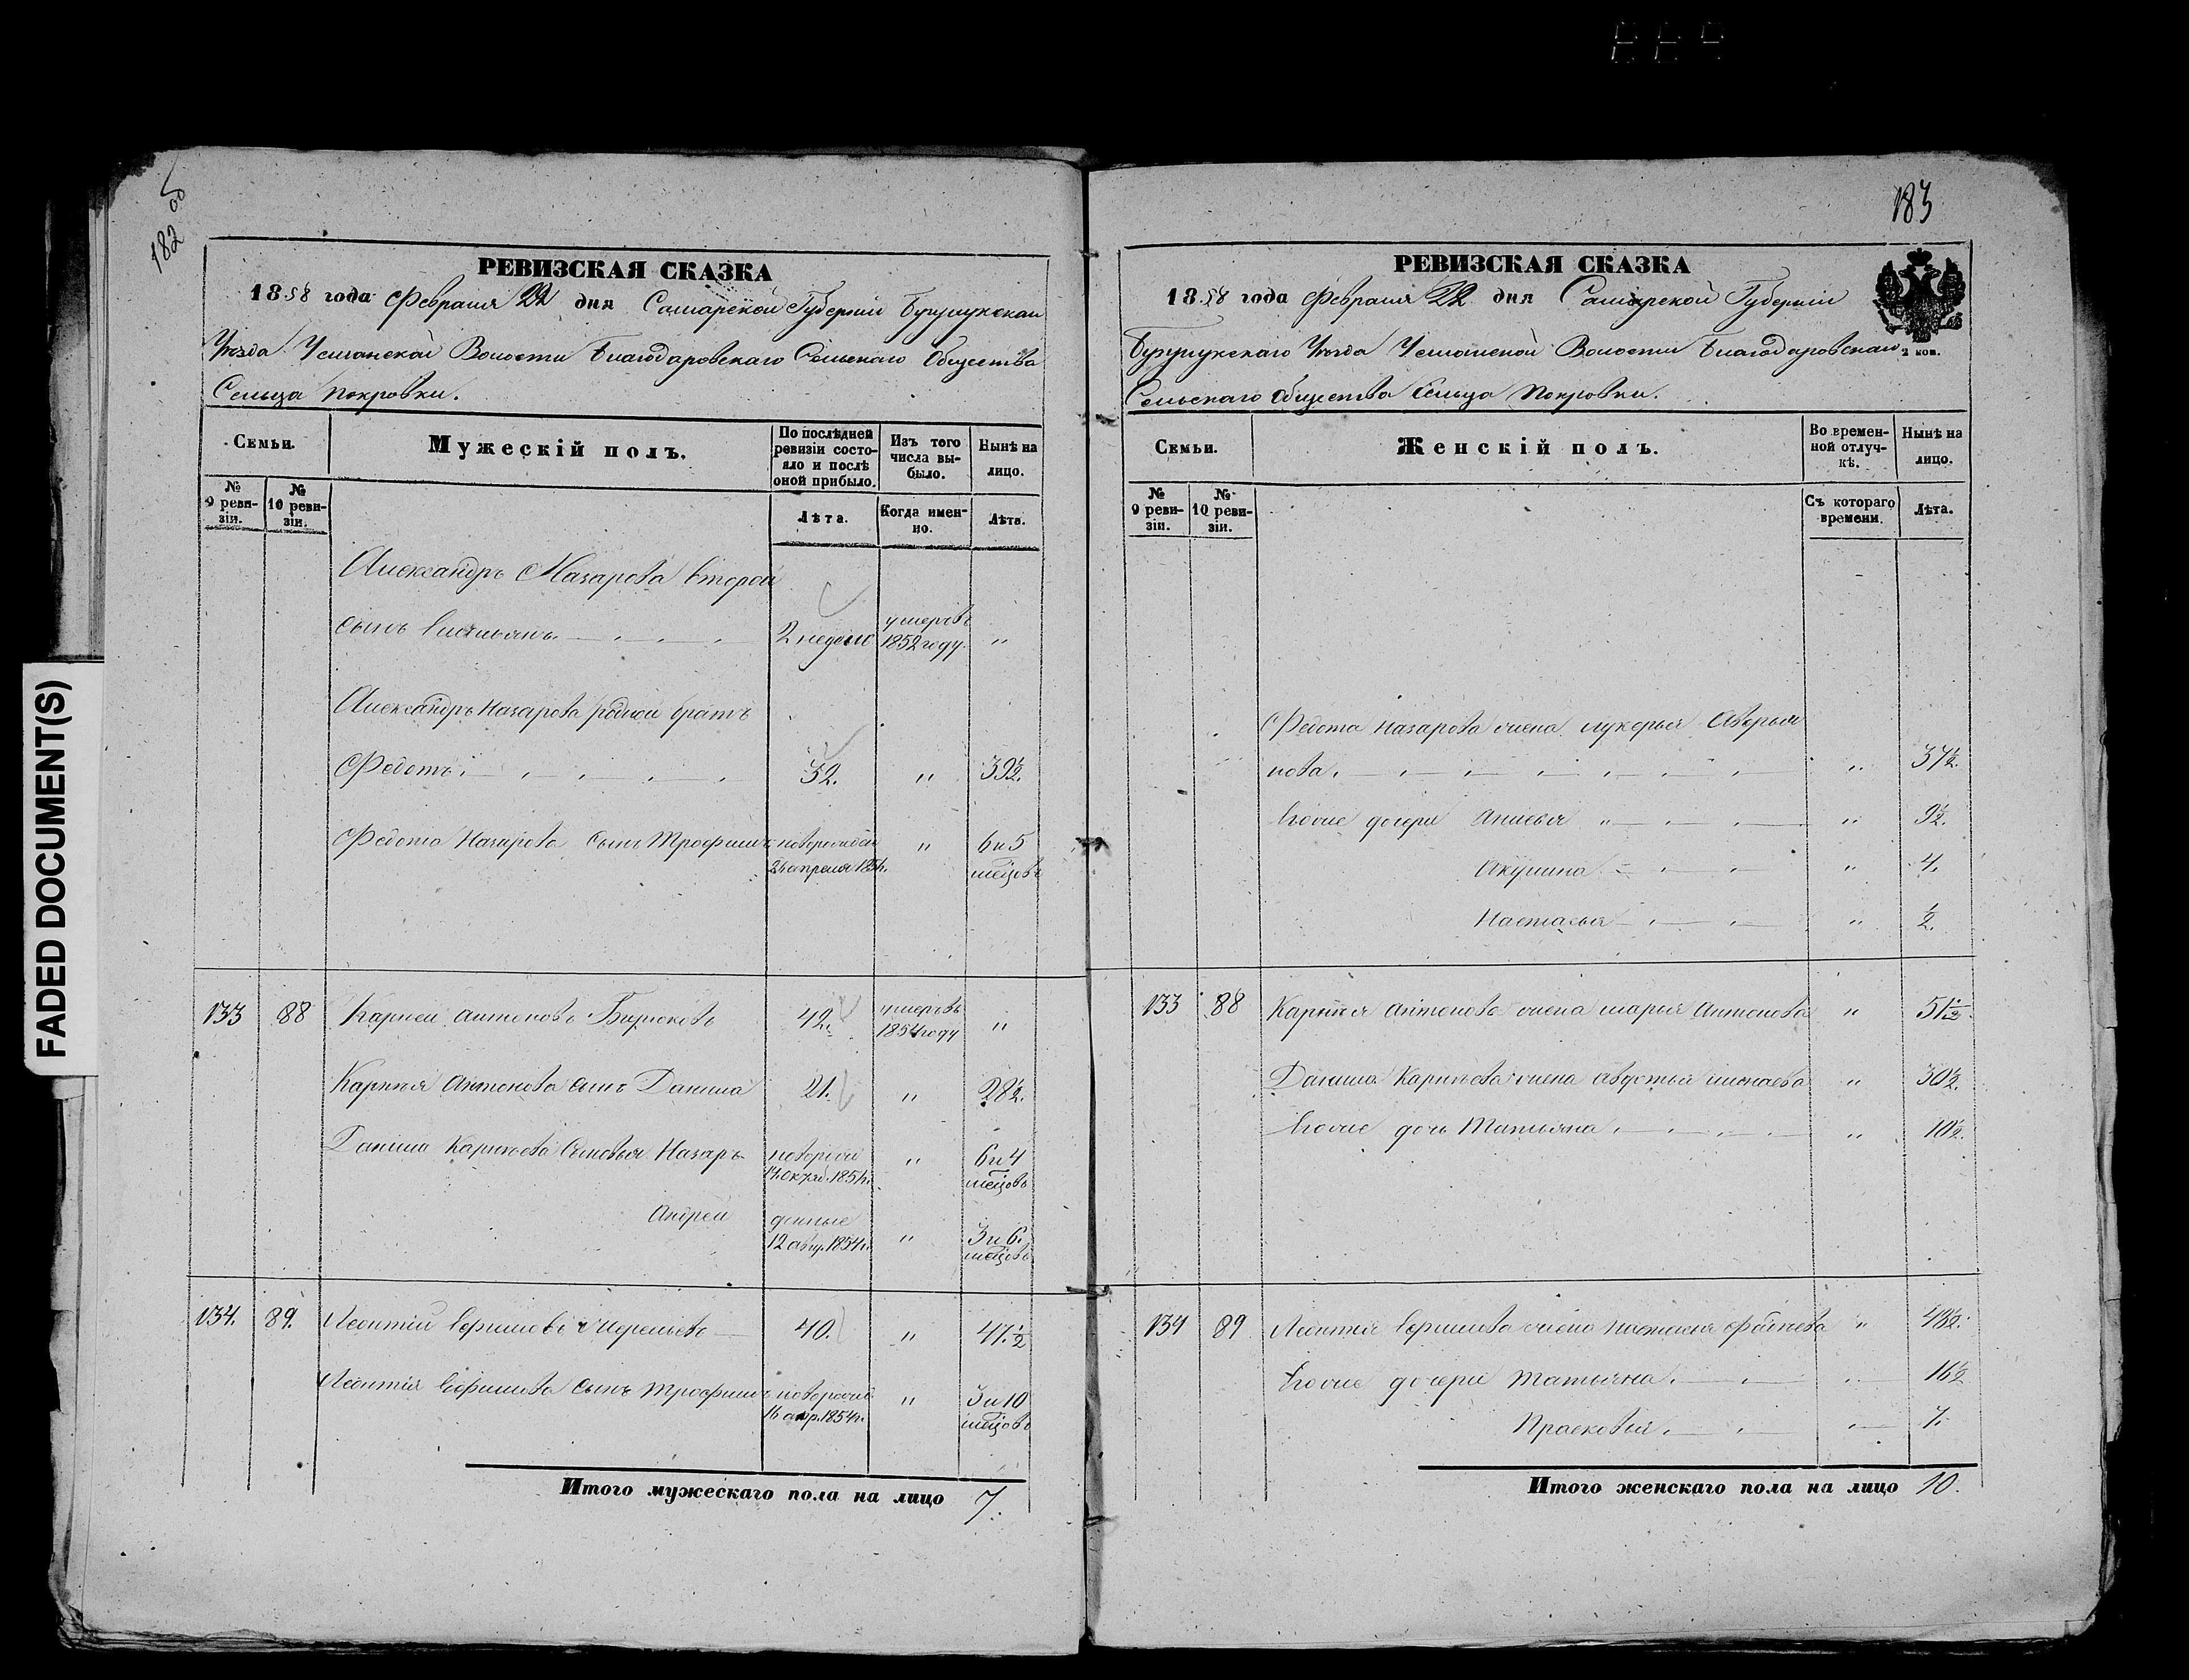 FADED DOCUMENT(S)
182 об
РЕВИЗСКАЯ СКАЗКА
1858 года Февраля 22 дня Самарской Губерніи Бузулукскаго
Уѣзда Усманской Волости Благодаровскаго Сельскаго Общества
Сельца Покровки.
Семьи.
Мужескій полъ.
По послѣдней ревизіи состояло и послѣ оной прибыло.
Изъ того числа выбыло.
Нынѣ на лицо.
№ 9 ревизіи.
№ 10 ревизіи.
Лѣта.
Когда именно.
Лѣта.
Александръ Назарова второй
сынъ 2 недели умеръ въ 1852 году "
Александръ Назарова родной братъ
Федотъ 32. " 39½.
Федота Назарова сынъ Трофимъ новорожден " 6 и 5
мѣцовъ
133 88 Карней Антоновъ Бирюковъ 42. умеръ въ 1854 году "
Карнея Антонова сынъ Данила 21. " 28½.
Данила Карнѣева сыновья Назаръ новорож " 6 и 4
мѣцовъ
Андрей денные " 3 и 6
12 авгу. 1854 г. мѣцовъ
134. 89. Леонтій 40. " 47.½
Леонтія сынъ Трофимъ новорож " 3 и 10
1854 г. мѣцовъ
Итого мужескаго пола на лицо 7.
183
РЕВИЗСКАЯ СКАЗКА
1858 года Февраля 22 дня Самарской Губерніи
Бузулукскаго Уѣзда Усманской Волости Благодаровскаго
2 коп.
Сельскаго Общества Сельца Покровки.
Семьи.
Женскій полъ.
Во временной отлучкѣ.
Нынѣ на лицо.
№ 9 ревизіи.
№ 10 ревизіи.
Съ котораго времени.
Лѣта.
Федота Назарова жена Лукерья Аверья
нова " 37½.
Ихъ же дочери Анисья " 9½.
Акулина " 4.
Настасья " ½.
133 88 Карнея Антонова жена Марья Антонова " 51½.
Данила Карнѣева жена Авдотья " 30½.
Ихъ же дочь Татьяна " 10½.
134 89 Леонтія жена Настасья " 48½.
Ихъ же дочери Татьяна 16½
Прасковья 7.
Итого женскаго пола на лицо 10.